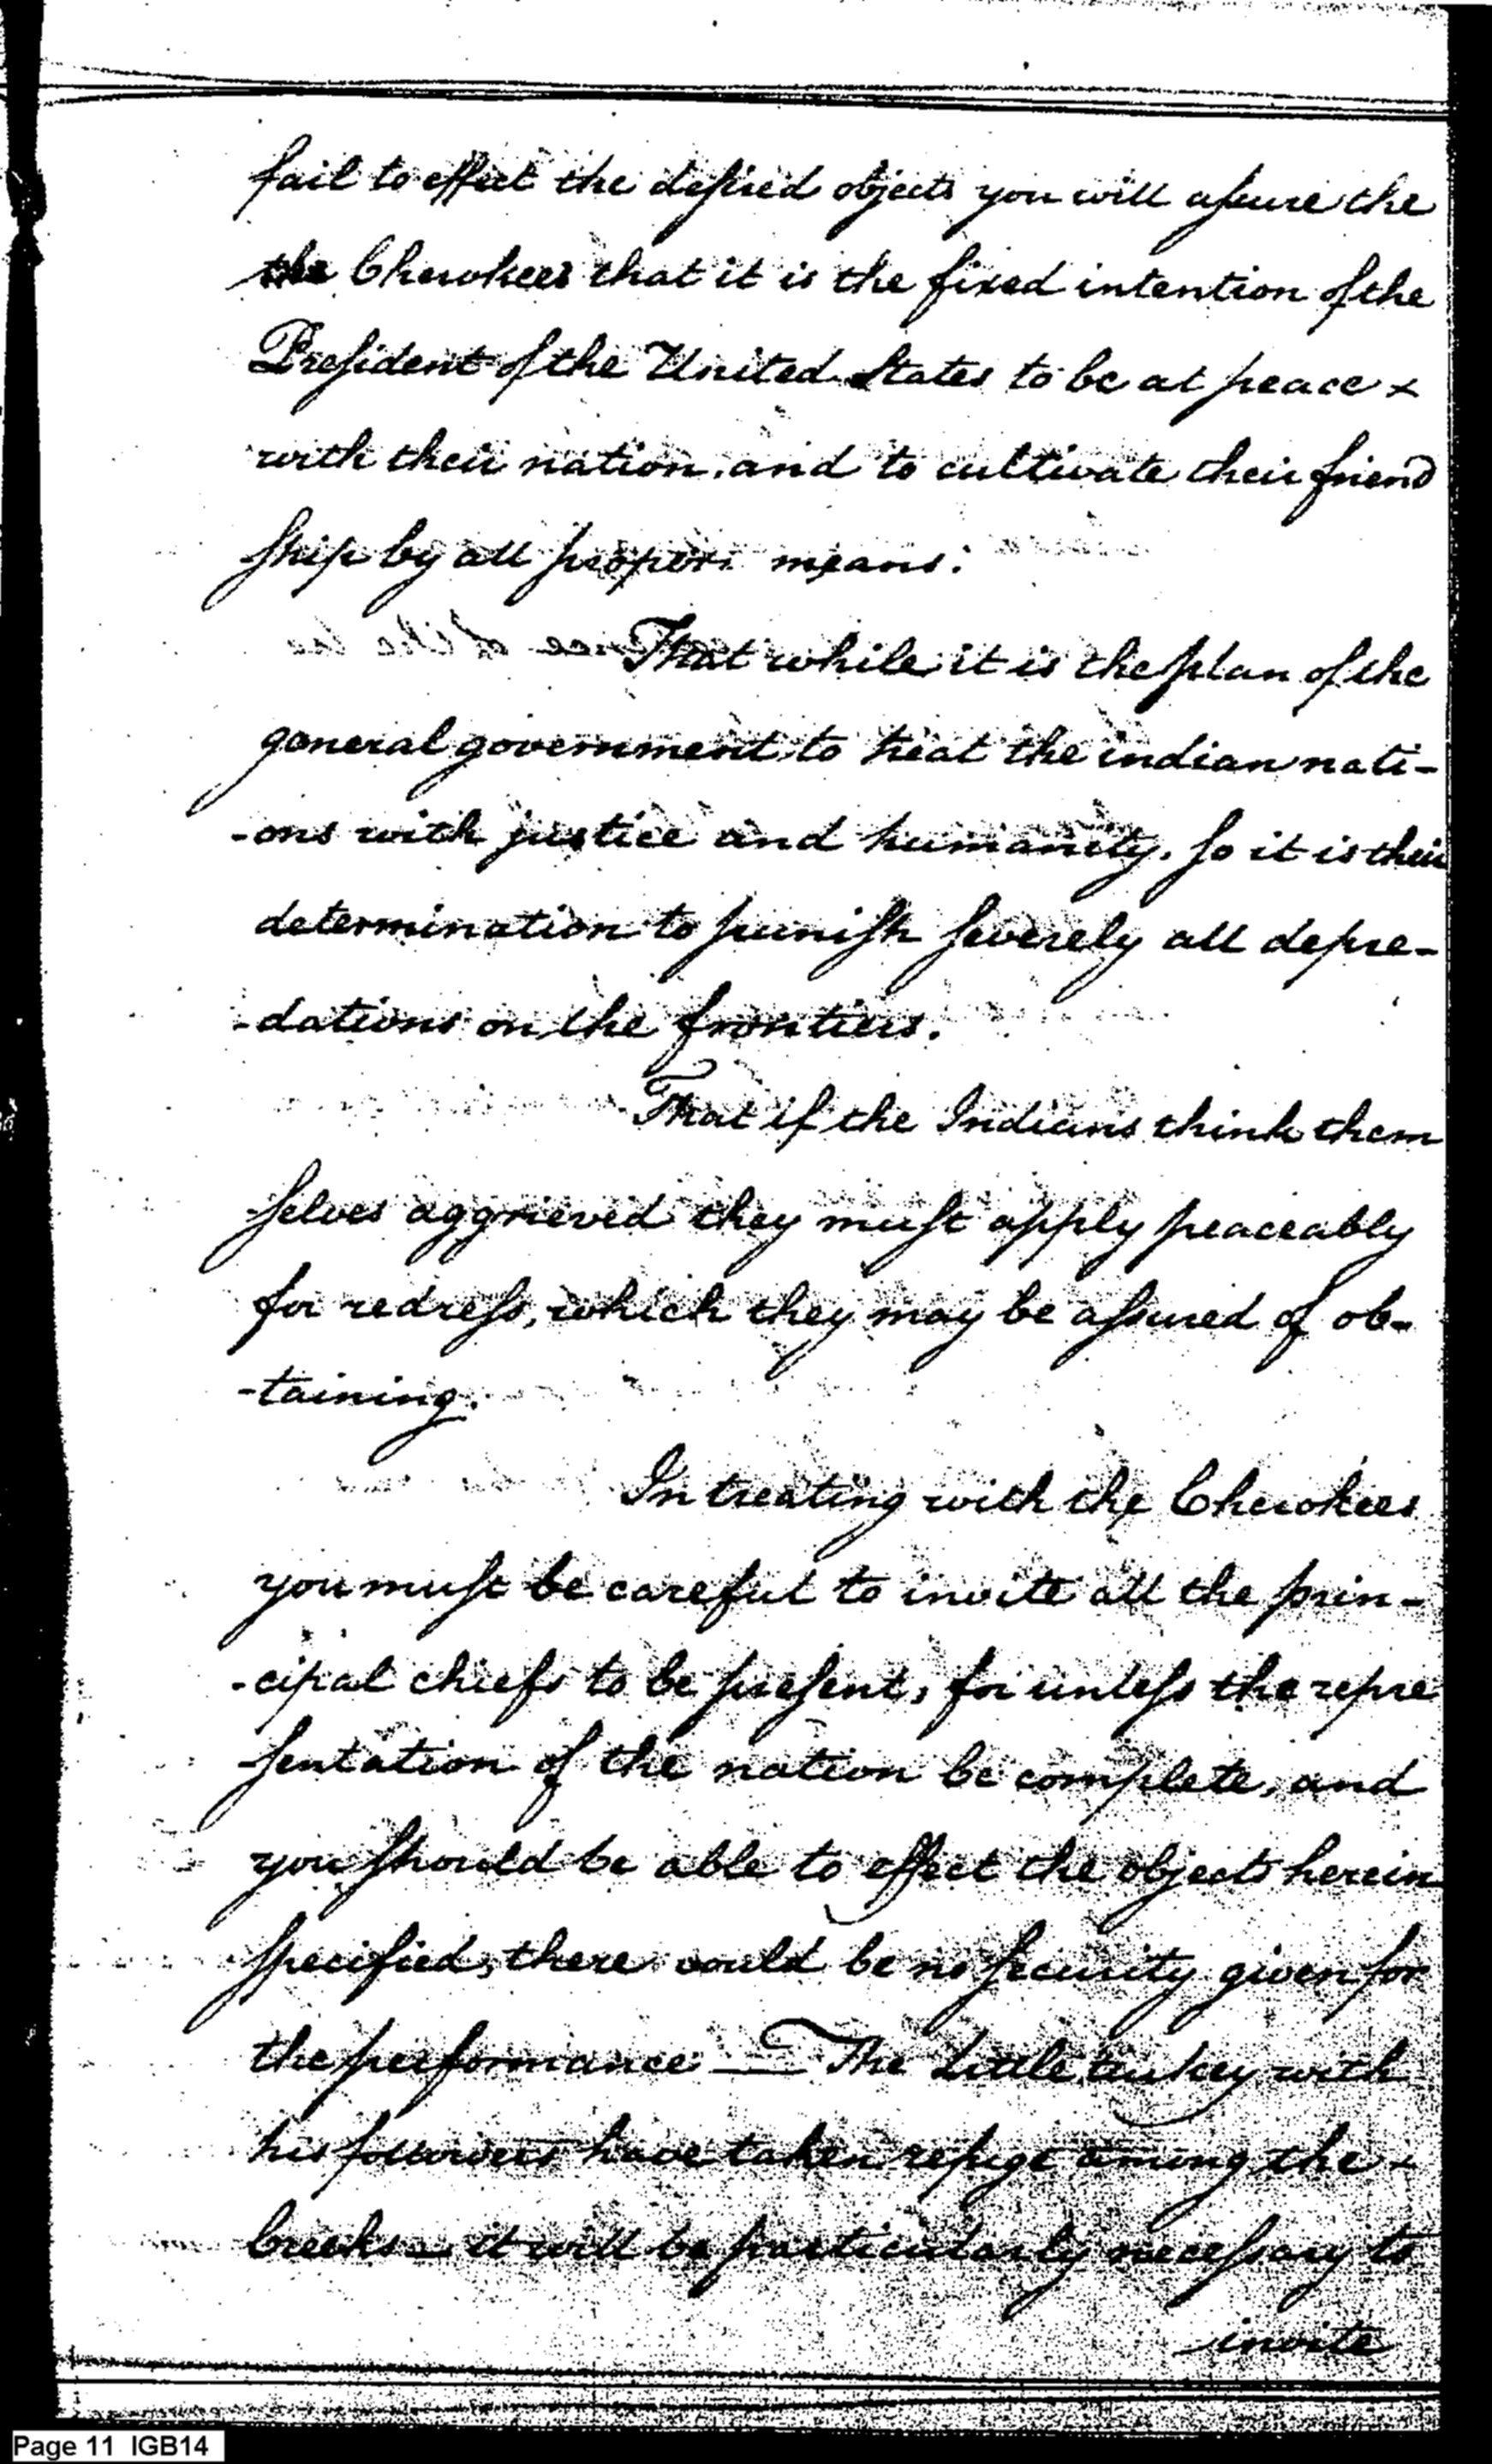 fail to effect the desired objects you will assure the
the Cherokees that it is the fixed intention of the
President of the United States to be at peace x
with their nation, and to cultivate their friend
ship by all proper means.
That while it is the plan of the
general government to treat the indian nati-
-ons with justice and humanity, so it is their
determination to punish severely all depre-
-dations on the frontiers.
That if the Indians think them
selves aggrieved they must apply peaceably
for redress, which they may be assured of ob-
-taining.
In treating with the Cherokees
you must be careful to invite all the prin-
-cipal chiefs to be present, for unless the repre
sentation of the nation be complete, and
you should be able to effect the objects herein
specified, there would be no security given for
the performance — The Little turkey with
his followers have taken refuge among the x
Creeks — it will be particularly necessary to
invite
Page 11 IGB14